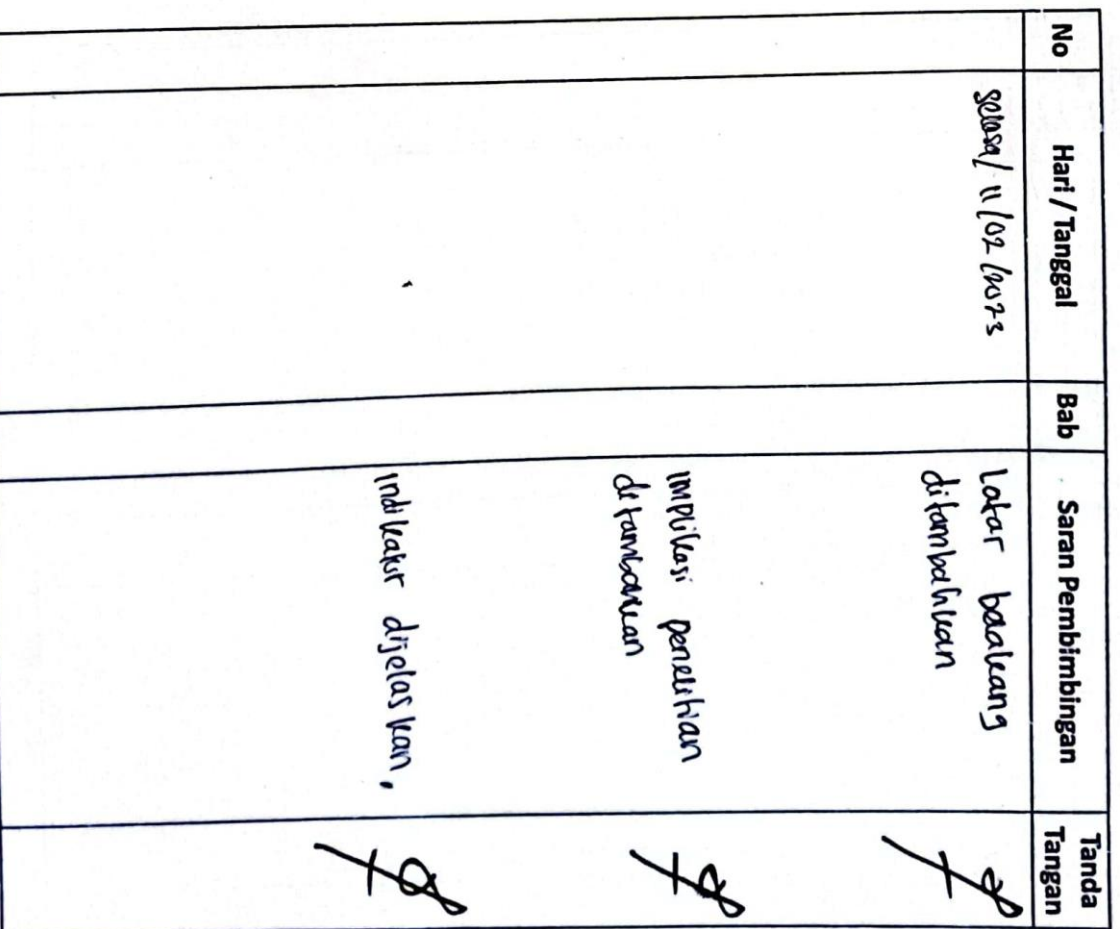 No Hari / Tanggal Bab Saran Pembimbingan Tanda Tangan
selasa/ 11/02/2023 Latar belakang
ditambahkan
Implikasi penelitian
ditambahkan
Indikator dijelaskan,